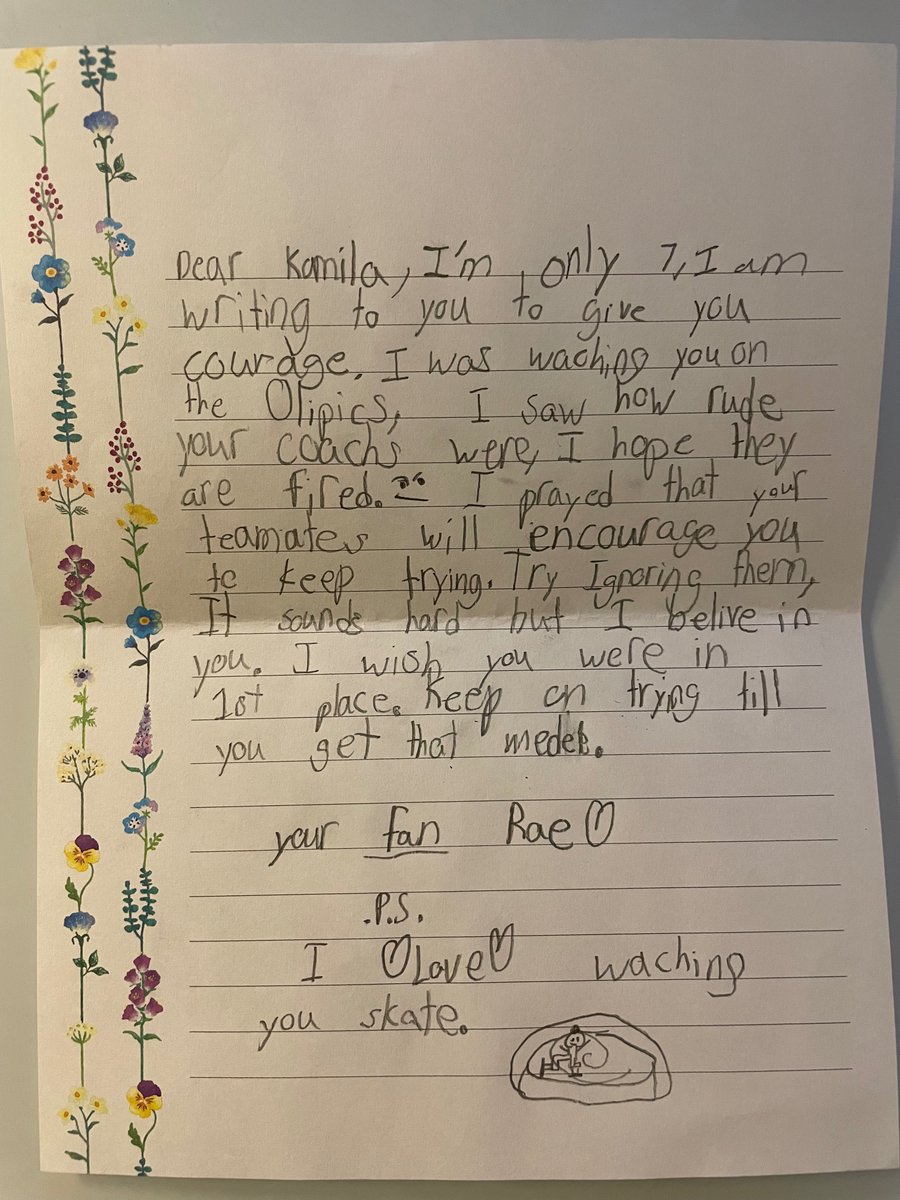 Dear Kamila, I'm, only 7, I am
writing to you to give you
courage. I was waching you on
the Olipics, I saw how rude
your coachs were, I hope they
are fired. I prayed that your
teamates will encourage you
to keep trying. Try Ignoring them,
It sounds hard but I belive in
you. I wish you were in
1st place. Keep on trying till
you get that medel.
your fan Rae
.P.S.
I Love waching
you skate.